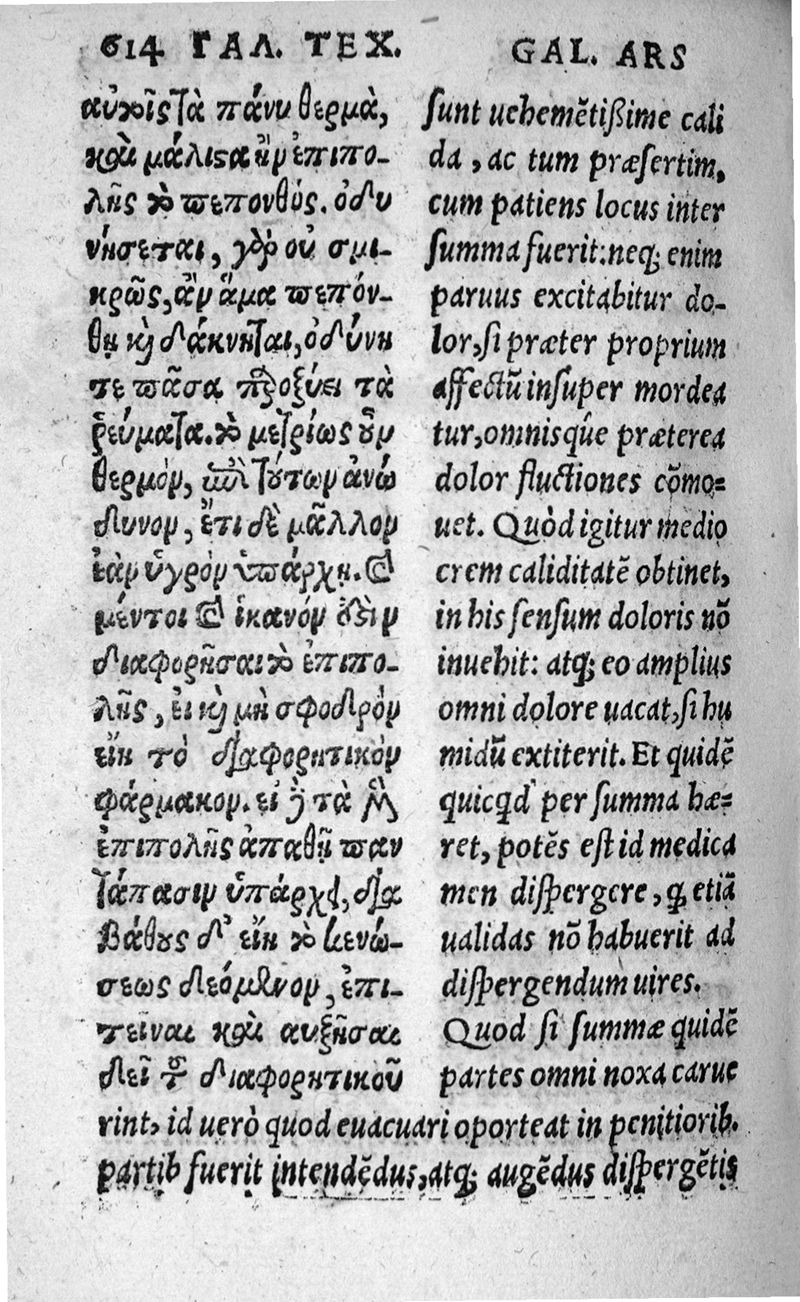 614 ΓΑΛ. ΤΕΧ.
αὐτοῖς τὰ πάνυ θερμὰ,
καὶ μάλιστα ἢν ἐπιπο-
λῆς τὸ πεπονθός. ὀδυ
νήσεται, γὰρ οὐ σμι-
κρῶς, ἂν ἅμα πεπόν-
θῃ καὶ δάκνηται, ὀδύνη
τε πᾶσα παροξύνει τὰ
ῥεύματα. τὸ μετρίως οὖν
θερμὸν, ἐπὶ τούτων ἀνώ
δυνον, ἔτι δὲ μᾶλλον
ἐὰν ὑγρὸν ὑπάρχῃ. καὶ
μέντοι καὶ ἱκανόν ἐστιν
διαφορῆσαι τὸ ἐπιπο-
λῆς, εἰ καὶ μὴ σφοδρὸν
εἴη τὸ διαφορητικὸν
φάρμακον. εἰ δὲ τὰ μὲν
ἐπιπολῆς ἀπαθῆ παν
τάπασιν ὑπάρχει, διὰ
βάθους δ' εἴη τὸ κενώ-
σεως δεόμενον, ἐπι-
τεῖναι καὶ αὐξῆσαι
δεῖ τὴν διαφορητικοῦ
GAL. ARS
sunt uehemẽtißime cali
da, ac tum præsertim,
cum patiens locus inter
summa fuerit: neq; enim
paruus excitabitur do-
lor, si præter proprium
affectũ insuper mordea
tur, omnisq́ue præterea
dolor fluctiones cõmo=
uet. Quòd igitur medio
crem caliditatẽ obtinet,
in his sensum doloris nõ
inuehit: atq; eo amplius
omni dolore uacat, si hu
midũ extiterit. Et quidẽ
quicqd per summa hæ=
ret, potẽs est id medica
men dispergere, q etiã
ualidas nõ habuerit ad
dispergendum uires.
Quod si summæ quidẽ
partes omni noxa carue
rint, id uerò quod euacuari oporteat in penitiorib.
partib fuerit intendẽdus, atq; augẽdus dispergẽtis